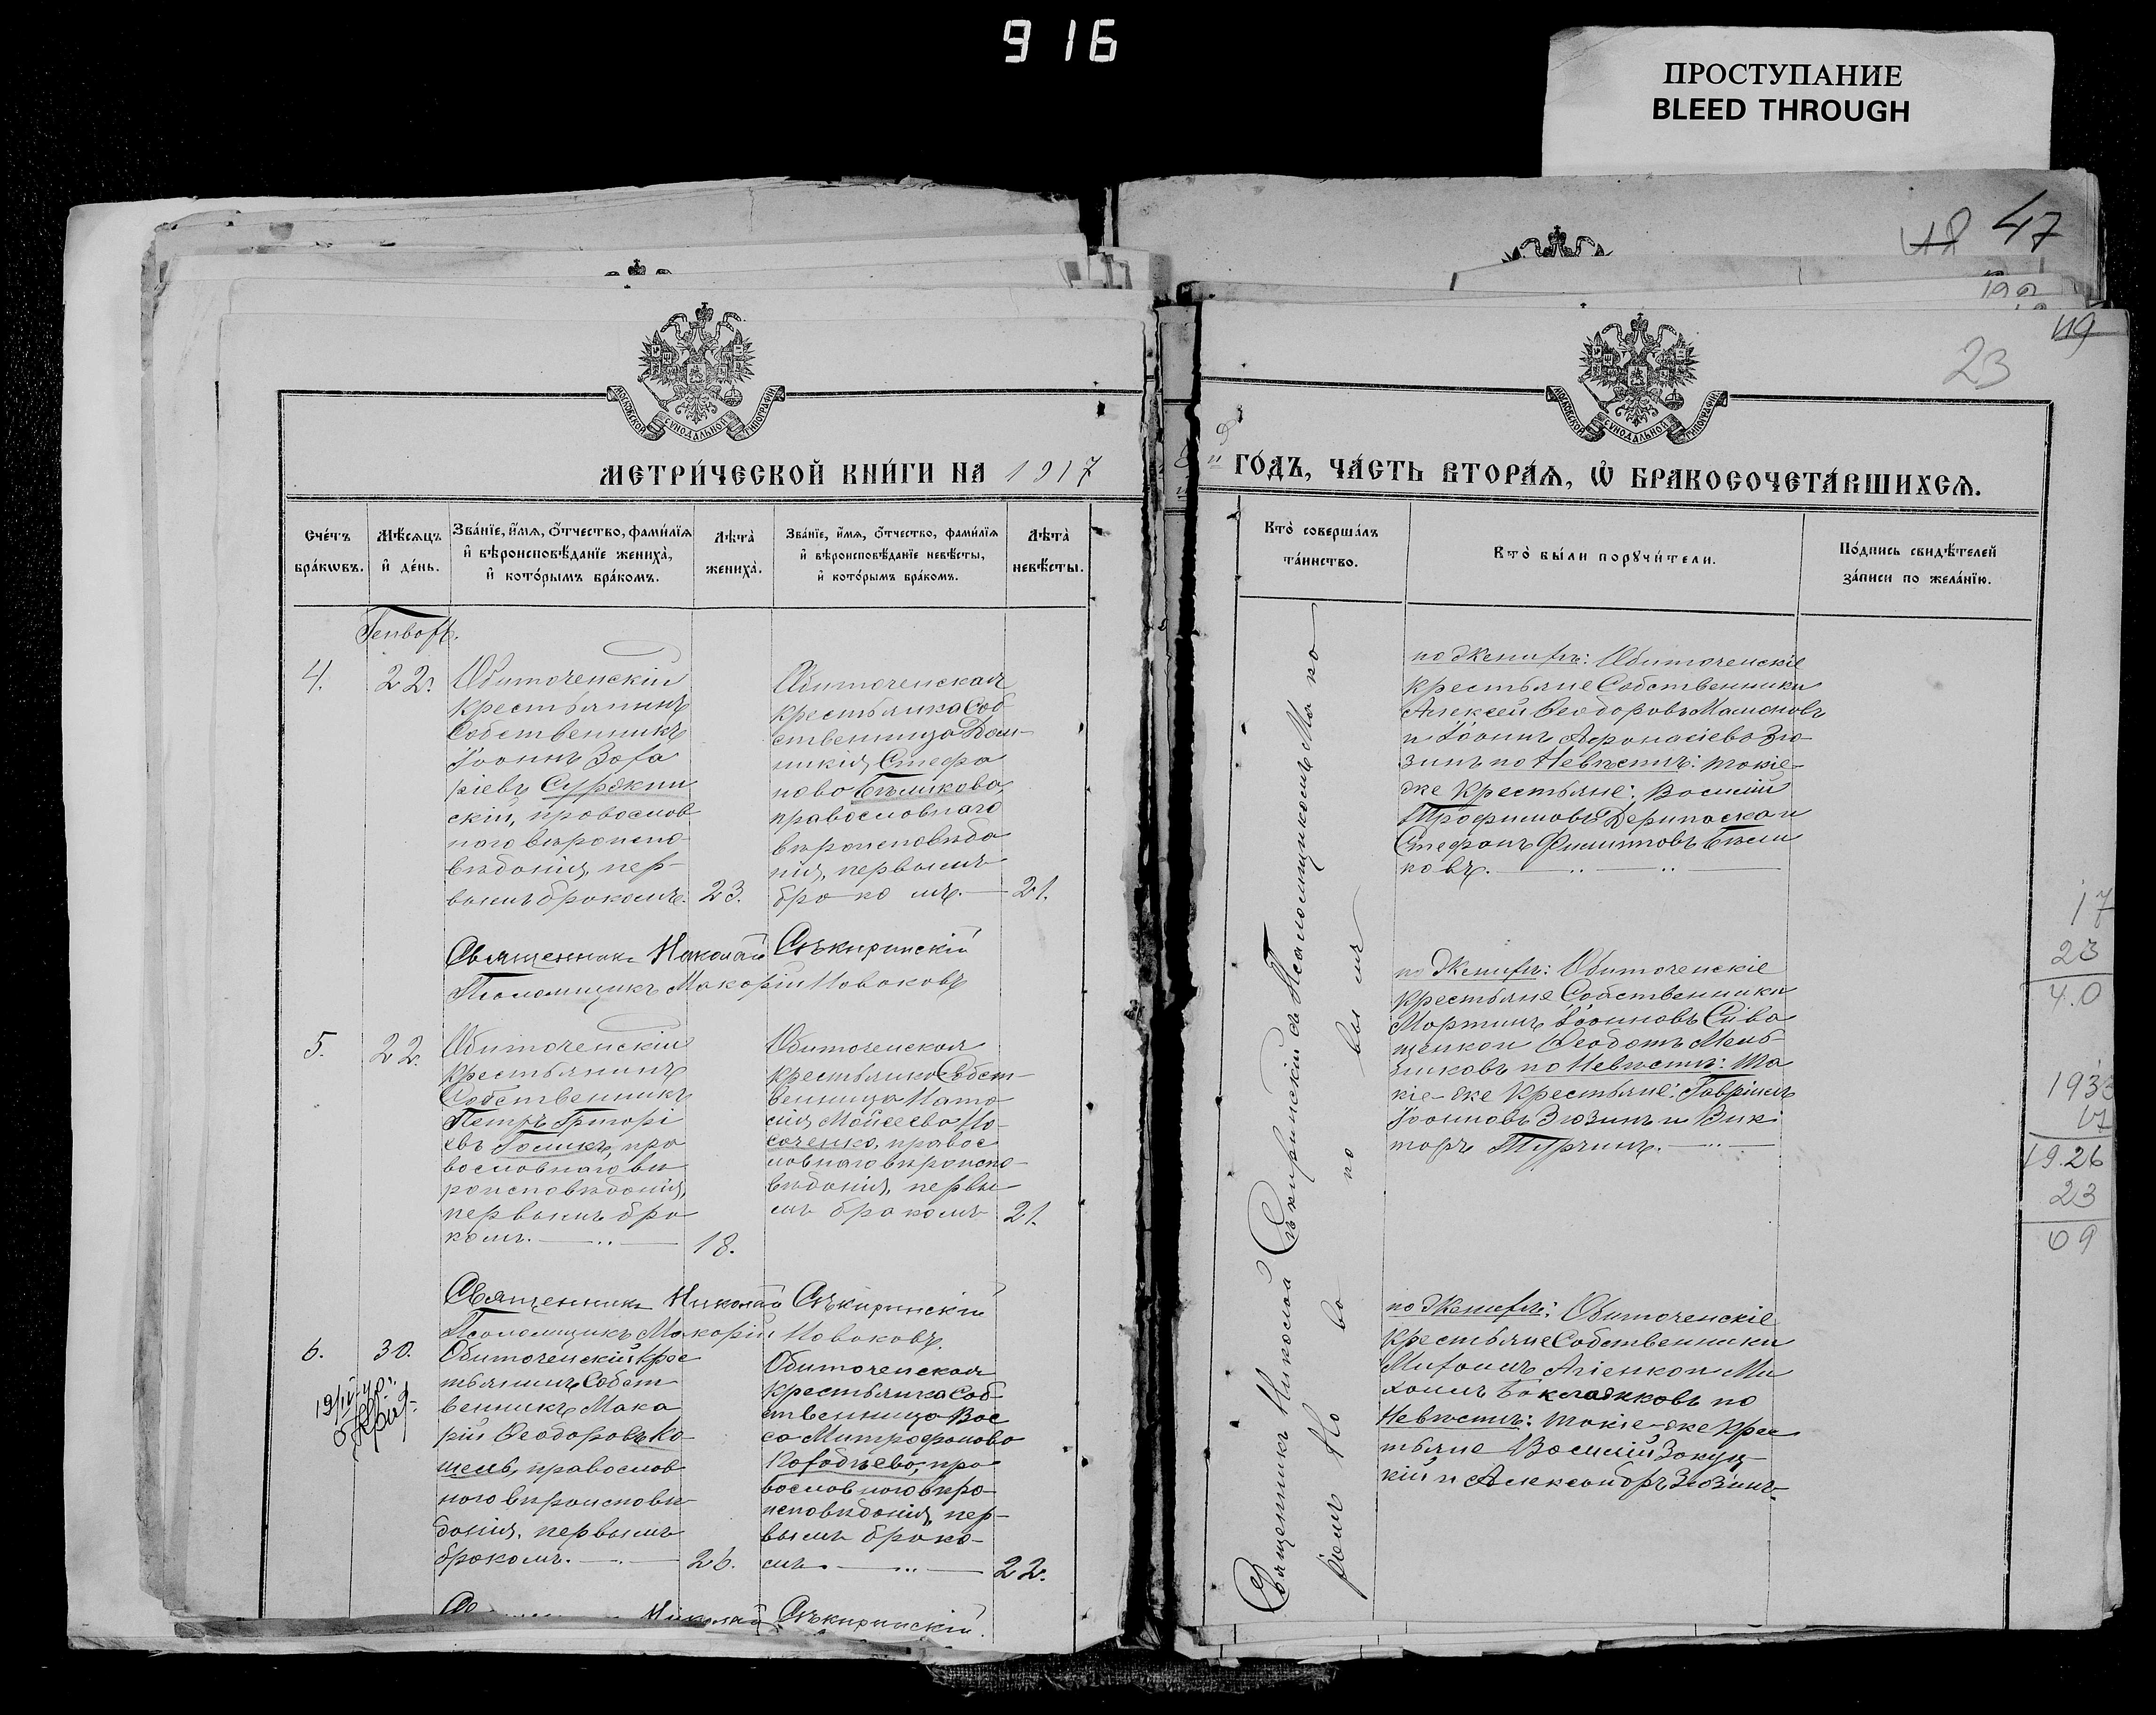 916
ПРОСТУПАНИЕ
BLEED THROUGH
47
119
23
МОСКОВСКОЙ СУНОДАЛЬНОЙ ТИПОГРАФІИ
МОСКОВСКОЙ СУНОДАЛЬНОЙ ТИПОГРАФІИ
МЕТРИ́ЧЕСКОЙ КНИ́ГИ НА 1917
ГО́ДЪ, ЧА́СТЬ ВТОРА́Ѧ, Ѽ БРАКОСОЧЕТА́ВШИХСѦ.
Сче́тъ бра́кѡвъ.
Мѣ́сяцъ и҆ де́нь.
Зва́нїе, и҆́мѧ, ѻ҆́тчество, фами́лїѧ и҆ вѣроисповѣ́данїе жениха̀, и҆ кото́рымъ бра́комъ.
Лѣта̀ жениха̀.
Зва́нїе, и҆́мѧ, ѻ҆́тчество, фами́лїѧ и҆ вѣроисповѣ́данїе невѣ́сты, и҆ кото́рымъ бра́комъ.
Лѣта̀ невѣ́сты.
Кто̀ соверша́лъ та́инство.
Кто̀ бы́ли порꙋчи́тели.
По́дпись свидѣ́телей за́писи по жела́нїю.
4.
22.
Обиточенскій
крестьянинъ
Собственникъ
Іоаннъ Заха
ріевъ Суржин
скій, православ
наго вѣроиспо
вѣданія, пер-
вымъ бракомъ.
23.
Обиточенская
крестьянка Соб
ственница Дом-
никія Стефа
нова Бѣликова,
православнаго
вѣроисповѣда
нія, первымъ
бракомъ.
21.
по Женихѣ: Обиточенскіе
крестьяне Собственники
Алексей Ѳеодоровъ Мамоновъ
и Іоаннъ Аѳонасіевъ Зю-
зинъ по Невѣстѣ: такіе-
же крестьяне: Василій
Трофимовъ Дерипаска и
Стефанъ Филипповъ Бѣли
ковъ.
Священникъ Николай Сѣкиринскій
Псаломщикъ Макарій Новаковъ
5.
22.
Обиточенскій
крестьянинъ
Собственникъ
Петръ Григорі
евъ Голикъ, пра
вославнаго вѣ
роисповѣданія,
первымъ бра
комъ.
18.
Обиточенская
крестьянка Собст-
венница Ната
лія Мойсеева Но-
соченко, правос
лавнаго вѣроиспо-
вѣданія, первы
мъ бракомъ
21.
по Женихѣ: Обиточенскіе
крестьяне Собственники
Мартинъ Іоанновъ Сива
щенко и Ѳеодотъ Мель-
никовъ по Невѣстѣ: та
кіе-же крестьяне: Гавріилъ
Іоанновъ Зюзинъ и Вик
торъ Турчинъ.
Священникъ Николай Сѣкиринскій
Псаломщикъ Макарій Новаковъ.
6.
30.
Обиточенскій крес
тьянинъ Собст
венникъ Мака
рій Ѳеодоровъ Ко-
шель, православ
наго вѣроисповѣ-
данія, первымъ
бракомъ.
26.
Обиточенская
крестьянка Соб-
ственница Вас
са Митрофанова
Кободѣева, пра
вославнаго вѣро-
исповѣданія, пер-
вымъ брако-
мъ.
22.
по Женихѣ: Обиточенскіе
крестьяне Собственники
Михаилъ Агіенко и Ми
хаилъ Баклажковъ по
Невѣстѣ: такіе-же крес
тьяне Василій Закуц-
кій и Александръ Зюзинъ.
Николай Сѣкиринскій.
Священникъ Николай Сѣкиринскій съ Псаломщикомъ Мака
ріемъ Новаковымъ
17
23
4.0
1933
17
19.26
23
09